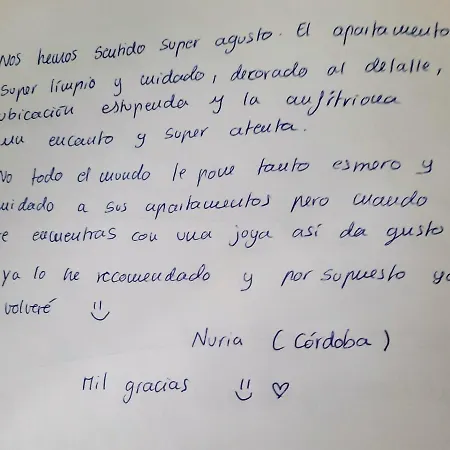 Nos hemos sentido super agusto. El apartamento
super limpio y cuidado, decorado al detalle,
ubicación estupenda y la anfitriona
un encanto y super atenta.
No todo el mundo le pone tanto esmero y
cuidado a sus apartamentos pero cuando
te encuentras con una joya así da gusto
ya lo he recomendado y por supuesto yo
volveré
Nuria (Córdoba)
Mil gracias